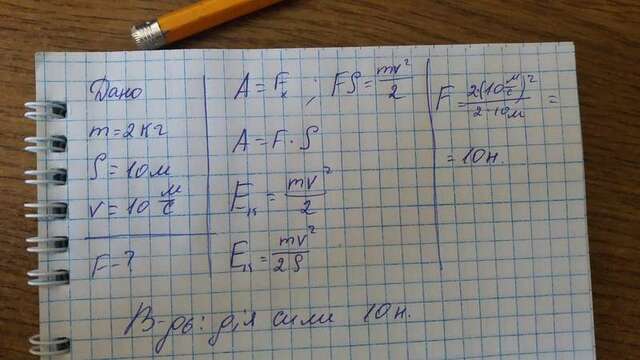 Дано
m = 2кг
S = 10м
v = 10 м/с
F - ?
A = Eк ; FS = mv²/2
A = F · S
Eк = mv²/2
Eк = mv²/2S
F = 2(10 м/с)²/2·10м =
= 10н.
дія сили 10н.